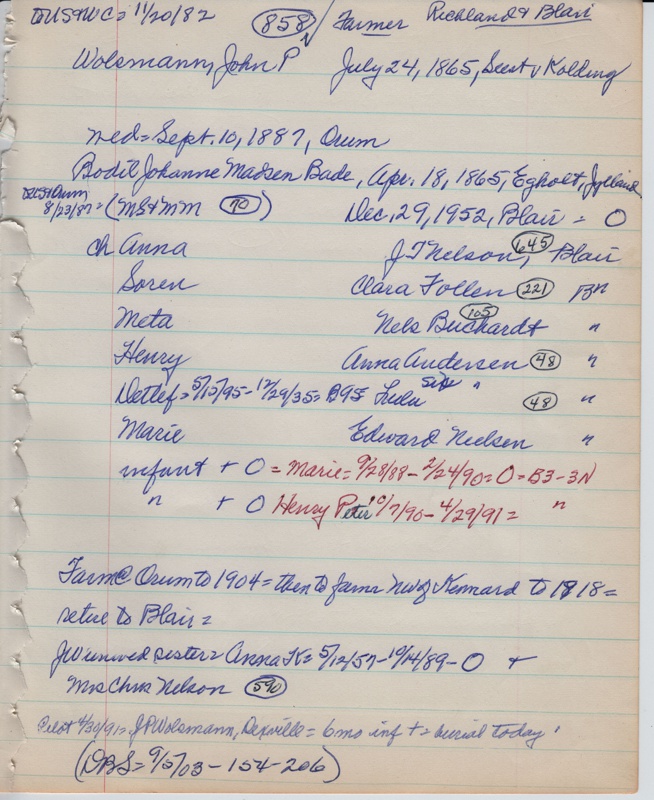 to US & WC = 11/20/82 858 / Farmer Richland & Blair
Wolsmann, John P July 24, 1865, Seest v Kolding
med = Sept. 10, 1887, Orum
Bodil Johanne Madsen Bade, Apr. 18, 1865, Egholt, Jylland
to US & Orum
8/23/87 = (MB & MM 70) Dec, 29, 1952, Blair = O
ch Anna J T Nelson, 645 Blair
Soren Clara Follen 221 Bn
Meta Nels Buchardt 105 "
Henry Anna Andersen 48 "
Detlef = 5/15/95 - 12/29/35 = B95 Lulu " 48 "
Marie Edward Nielsen "
infant + O = Marie = 9/28/88 - 2/24/90 = O = B3 - 3N
" + O Henry Peter 10/7/90 - 4/29/91 = "
Farm @ Orum to 1904 = then to farm NW of Kennard to 1918 =
retire to Blair =
JW unwed sister = Anna K = 5/12/57 - 10/14/89 - O +
Mrs Chris Nelson 590
Pilot 4/30/91 = J P Wolsmann, Dexville = 6 mo inf + = burial today
(DBS = 9/5/03 - 154 - 206)